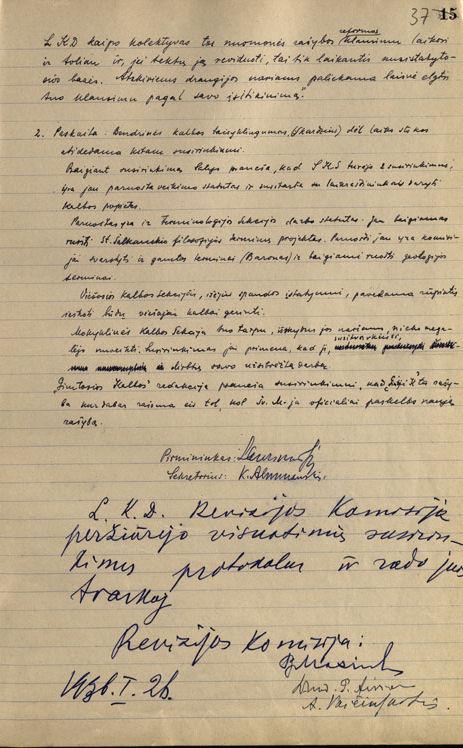 37 15
L K D kaipo kolektyvas tos nuomonės rašybos reformos klausimu laikosi
ir toliau ir, jei tektų ją reviduoti, tai tik laikantis nusistatytosios bazės. Atskiriems draugijos nariams paliekama laisvė elgtis
tuo klausimu pagal savo įsitikinimą."
2. Paskaita: Bendrinės kalbos taisyklingumas, (Skardžius) dėl laiko stokos
atidedama kitam susirinkimui.
Baigiant susirinkimą Salys praneša, kad SKS turėjo 2 susirinkimus,
yra jau paruošta veikimo statutas ir susitarta su laikraštininkais daryti
kalbos popietes.
Paruoštas yra ir Terminologijos sekcijos darbo statutas. Jau baigiamas
ruošti St. Šalkauskio filosofijos terminų projektas. Paruošti jau yra komisijai svarstyti ir gamtos terminai (Baronas) ir baigiami ruošti geologijos
terminai.
Viešosios kalbos sekcijai, išėjus spaudos įstatymui, pavedama rūpintis
ieškoti būdų viešajai kalbai gerinti.
Mokyklinės Kalbos Sekcija tuo tarpu, išskyrus jos narius, nieko negalėjo nuveikti. Susirinkimas jai primena, kad ji, susitvarkiusi,
dirbtų savo nusibrėžtą darbą.
Gimtosios Kalbos redakcija praneša susirinkimui, kad rašyba
kurdabar rašoma eis tol, kol Šv. M-ja oficialiai paskelbs naują
rašybą.
Pirmininkas:
Sekretorius: K.
L. K. D. Revizijos Komisija
peržiūrėjo visuotinių susirinkimų protokolus ir rado juos
tvarkoj
Revizijos Komisija:
1936. I. 26.
A. Vaičiulaitis.